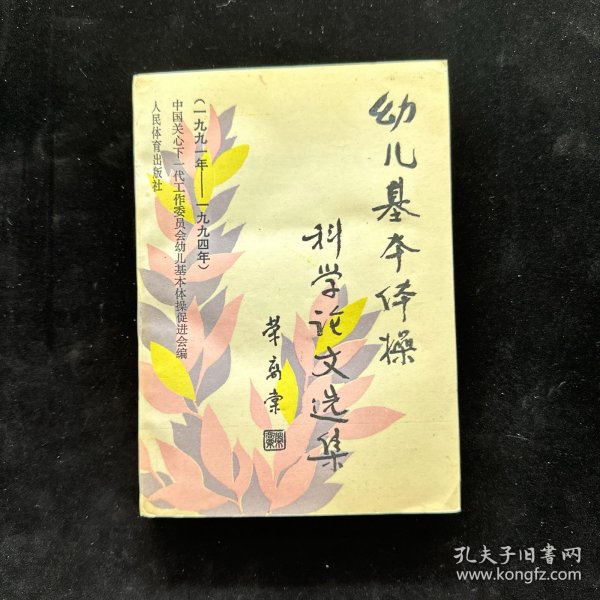 幼儿基本体操
科学论文选集
荣高棠
(一九九一年——一九九四年)
中国关心下一代工作委员会幼儿基本体操促进会编
人民体育出版社
孔夫子旧书网
www.kongfz.com